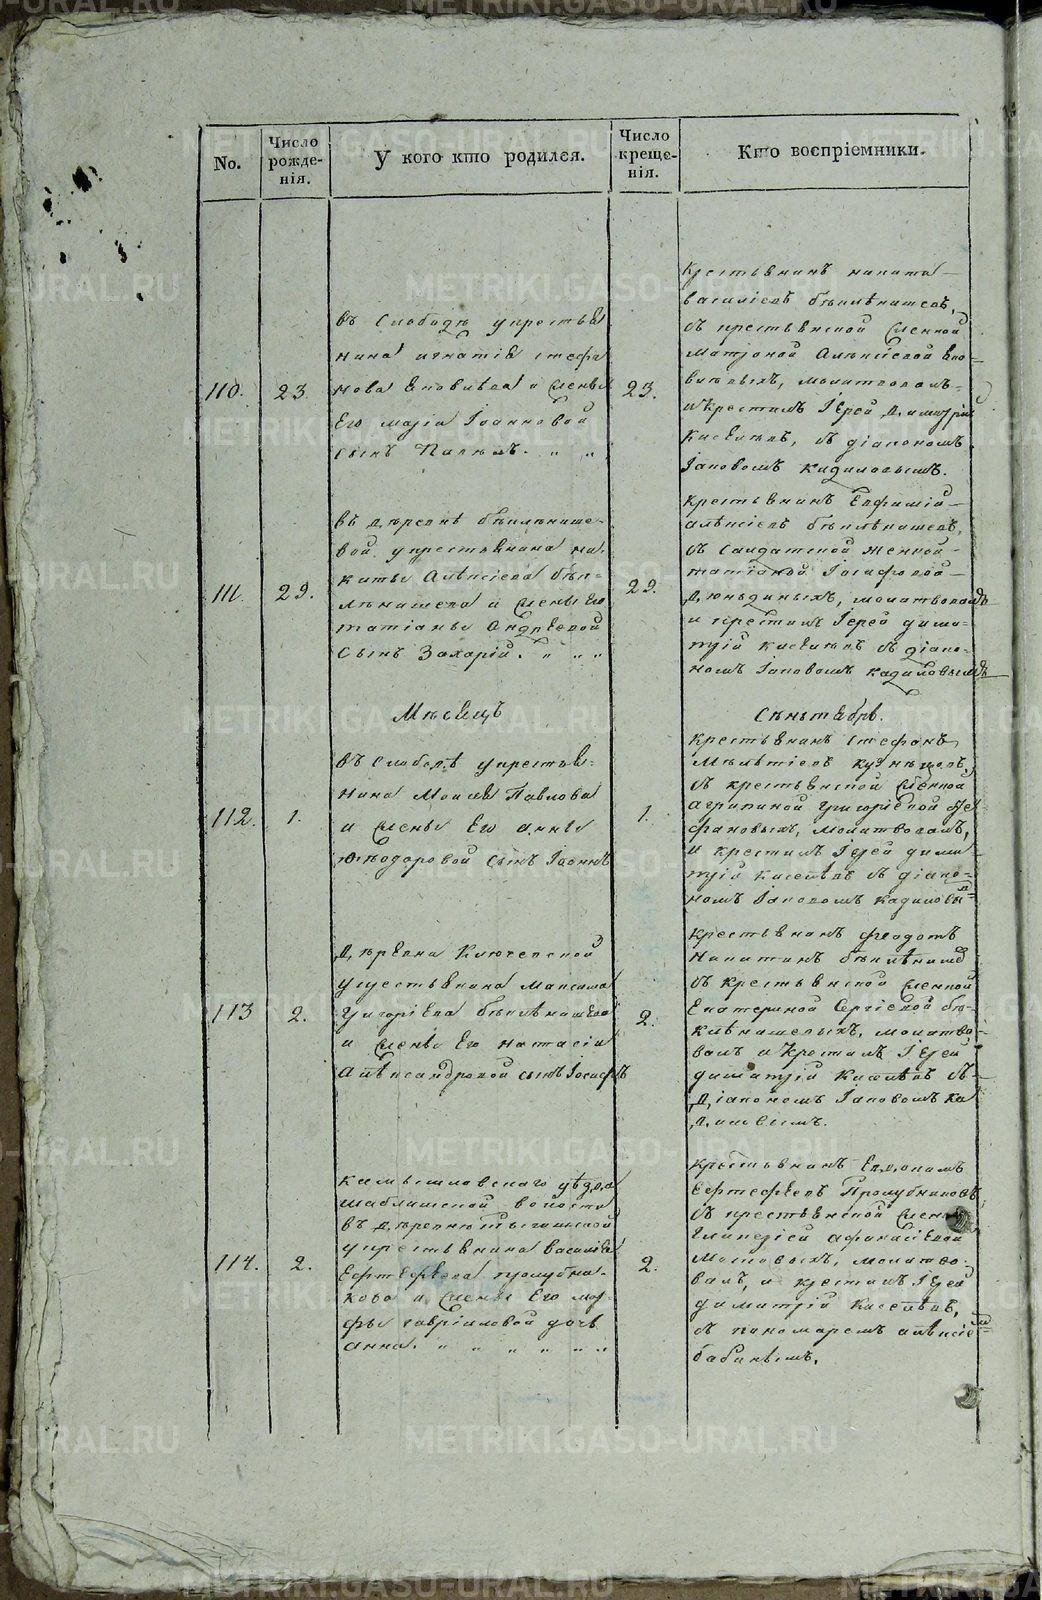 No.
Число рожденія.
У кого кто родился.
Число крещенія.
Кто воспріемники.
110.
23.
въ Слободѣ у крестья
нина игнатія стефа
нова Яковлева и жены
Его маріи Іоанновой
сынъ Павелъ. „ „
23.
Крестьянинъ никита
василіевъ
съ крестьянской женкой
матроной Алексіевой Яко
влевыхъ, молитвовалъ
и крестилъ Іерей Димитрій
Киселевъ, съ діакономъ
Іаковомъ Кадиловымъ.
111.
29.
въ деревнѣ
вой у крестьянина ни
киты Алексіева
и жены Его
татіаны Андреевой
Сынъ Захарій. „ „ „
29.
Крестьянинъ Евфимій
алексіевъ
съ Салдатской женкой
татіаной Іосифовой
молитвовалъ
и крестилъ Іерей дими
трій киселевъ съ діако
номъ Іаковомъ кадиловымъ
Мѣсяцъ
Сентябрь.
112.
1.
въ Слободѣ у крестья
нина Моисея Павлова
и жены Его анны
Ѳеодоровой сынъ Іоаннъ
1.
крестьянинъ стефанъ
Кузнецовъ,
съ крестьянской женкой
Агрипиной григоріевой Сте
фановыхъ, молитвовалъ,
и крестилъ Іерей дими
трій киселевъ съ діако
номъ Іаковомъ кадиловы
113
2.
Деревни Ключевской
у крестьянина Максима
Григоріева
и жены Его настасіи
Александровой сынъ Іосифъ
2.
крестьянинъ Феодотъ
Никитинъ
съ крестьянской женкой
Екатериной Сергіевой
молитво
валъ и Крестилъ Іерей
димитрій Киселевъ съ
Діакономъ Іаковомъ Ка
диловымъ.
114.
2.
камышловскаго уѣзда
волости
въ деревню
у крестьянина василія
Евстефеева
кова и жены Его мар
фы гавріиловой дочь
анна. „ „ „ „ „ „
2.
крестьянинъ
Евстефеевъ
съ крестьянской женкой
Гликеріей афанасіевой
молитво
валъ, и крестилъ Іерей
димитрій Киселевъ,
съ пономаремъ алексіе
бабинымъ.
METRIKI.GASO-URAL.RU